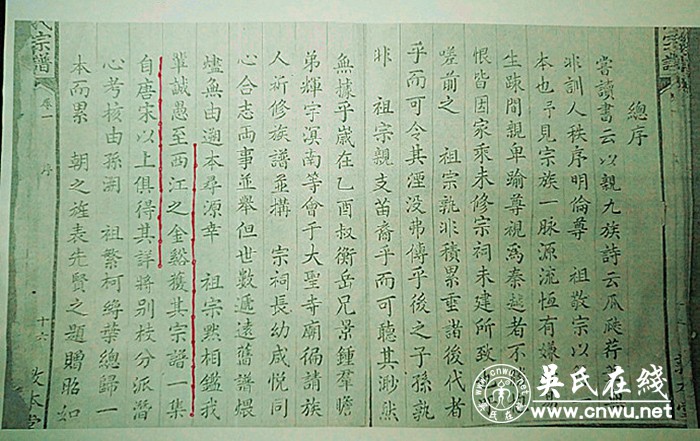 總序
嘗讀書云以親九族詩云瓜瓞
非訓人秩序明倫尊 祖敬宗以
本也予見宗族一脉源流恆有嫌
生踈間親卑踰尊視為秦越者不
恨皆因家乘未修宗祠未建所致
嗟前之 祖宗孰非積累重諸後代者
乎而可令其湮没弗傳乎後之子孫孰
非 祖宗親支苗裔乎而可聽其渺然
無據乎嵗在乙酉叔衡岳兄景鍾羣瞻
弟輝宇滇南等會于大聖寺廟徧請族
人祈修族譜並構 宗祠長幼咸悦同
心合志両事並舉但世數遞逺舊譜煨
燼無由遡本尋源幸 祖宗黙相鑑我
輩誠愚至西江之金谿獲其宗譜一集
自唐宋以上俱得其詳將别枝分派潛
心考核由孫溯 祖繁柯綘葉總歸一
本而累 朝之旌表先賢之題贈昭如
氏宗譜 卷一 序 十六 敦本堂
吴氏在线
www.cnwu.net